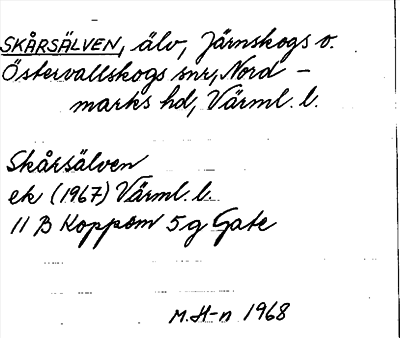 SKÅRSÄLVEN, älv, Järnskogs o.
Östervallskogs snr, Nord-
marks hd, Värml. l.
Skårsälven
ek (1967) Värml. l.
11 B Koppom 5g Gate
M. H-n 1968